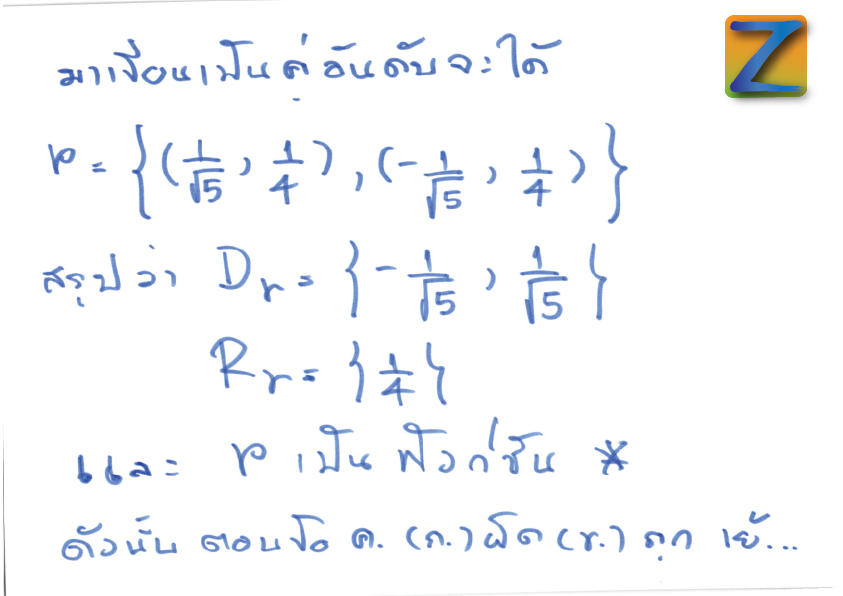 Z
มาเขียนเป็นคู่อันดับจะได้
r = {(1/√5, 1/4), (-1/√5, 1/4)}
สรุปว่า Dr = {-1/√5, 1/√5}
Rr = {1/4}
และ r เป็น ฟังก์ชัน *
ดังนั้น ตอบข้อ ค. (ก.) ผิด (ข.) ถูก เย้...